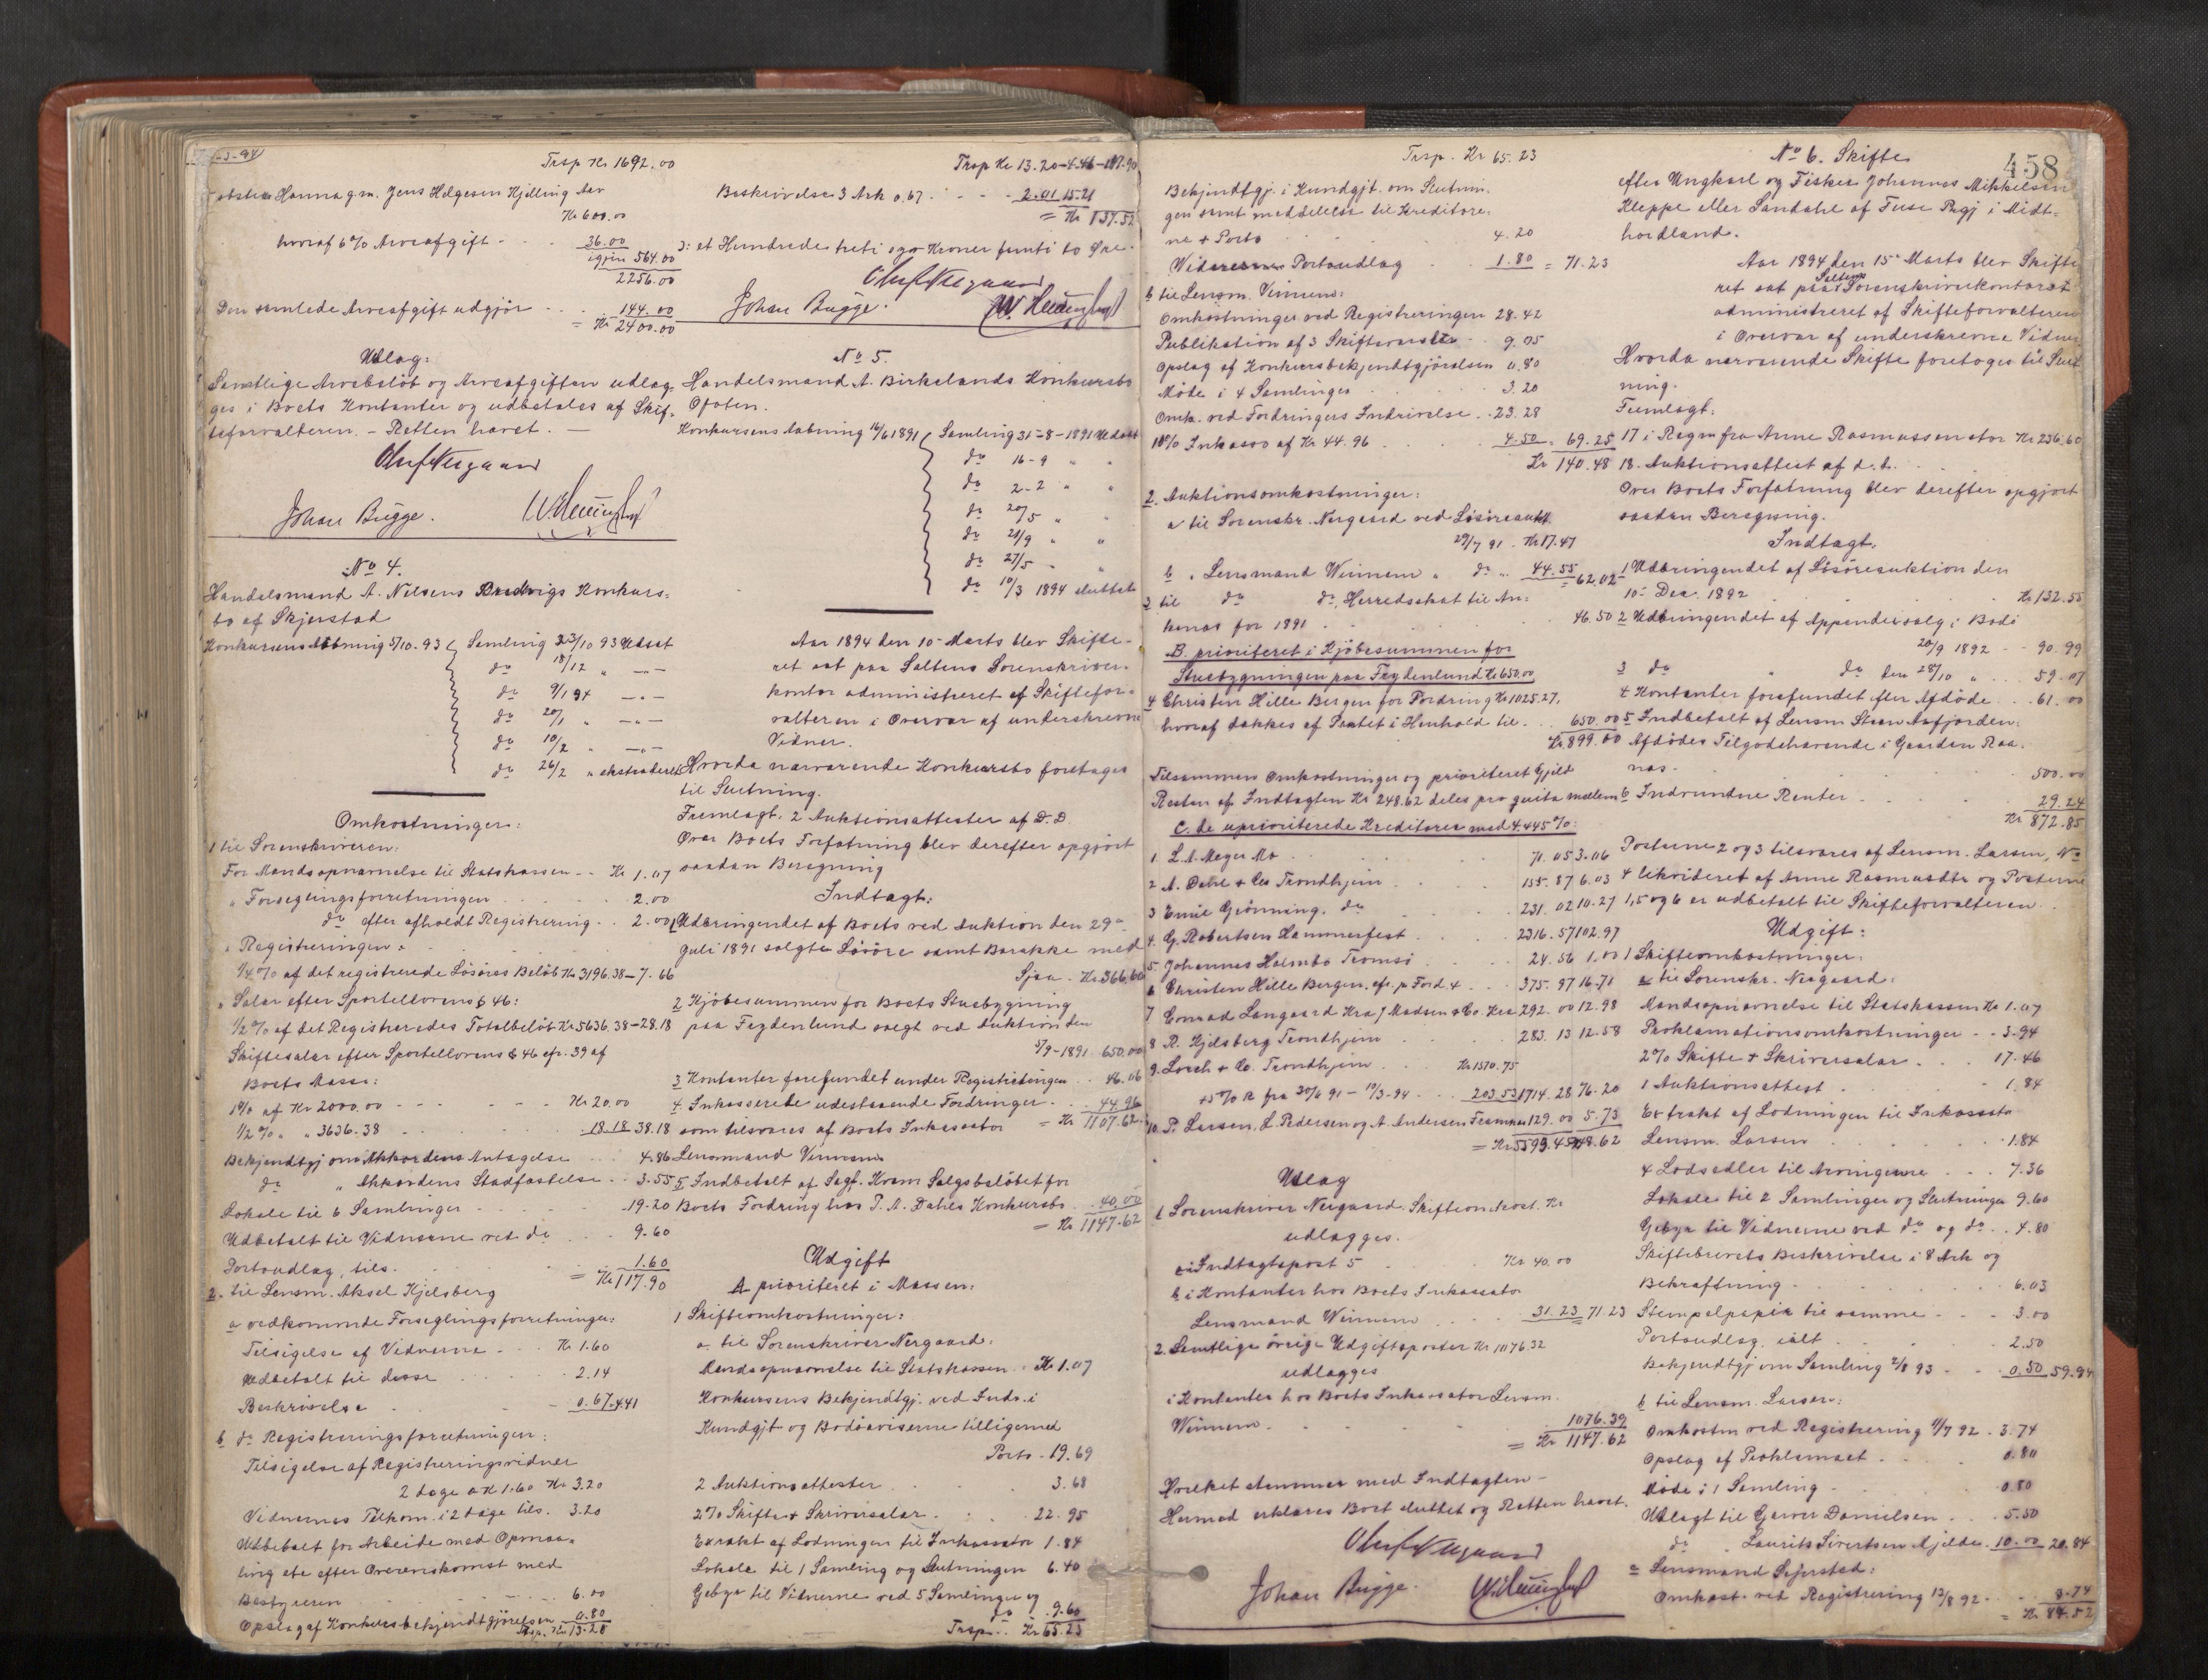 -3-94
Trsp Kr 1692.00
Hanna g.m. Jens Helgesen Hjelling Arv
Kr 600.00
hvoraf 6% Arveafgift - 36.00
igjen 564.00
2256.00
Den samlede Arveafgift udgjør - 144.00
= Kr 2400.00
Udlæg:
Samtlige Arvebeløb og Arveafgiften udlæg-
ges i Boets Kontanter og udbetales af Skif-
teforvalteren. - Retten hævet. -
Olaf Nergaard
Johan Bugge.
No 4.
Handelsmand A. Nilsens Konkurs-
bo af Skjerstad
Konkursens Aabning 5/10-93 Samling 23/10 93 Udsat
do 18/12 " -"-
do 9/1 94 -"-
do 20/1 " -"-
do 10/2 " -"-
do 26/2 " ekstraderet
Omkostninger:
1 til Sorenskriveren:
For Mandsopnævnelse til Statskassen - Kr 1.07
" Forseglingsforretningen 2.00
do efter afholdt Registrering 2.00
" Registreringen:
1/4% af det registrerede Løsøres Beløb Kr 3196.38 - 7.66
" Salær efter Sportellovens § 46:
1/2% af det Registreredes Totalbeløb Kr 5636.38 - 28.18
Skiftesalær efter Sportellovens § 46 cfr. 39 af
Boets Masse:
1% af Kr 2000.00 - Kr 20.00
1/2% " " 3636.38 18.18 38.18
Bekjendtgj om Akkordens Antagelse 4.86
do " Akkordens Stadfæstelse 3.55
Lokale til 6 Samlinger 19.20
Udbetalt til Vidnerne ved do 9.60
Portoudlæg, tils. 1.60
= Kr 117.90
2. til Lensm. Aksel Hjelsberg
a vedkommende Forseglingsforretningen:
Tilsigelse af Vidnerne - Kr 1.60
Udbetalt til disse 2.14
Beskrivelse 0.67 - 4.41
b do Registreringsforretningen:
Tilsigelse af Registreringsvidner
2 dage a Kr 1.60 Kr 3.20
Vidnernes Tilkom. i 2 dage tils. 3.20
Udbetalt for Arbeide med Opmaa-
ling etc efter Overenskomst med
Bestyreren 6.00
Opslag af Konkursbekjendtgjørelsen 0.80
Trsp. Kr 13.20
Trsp Kr 13.20 - 4.46 - 117.90
Beskrivelse 3 Ark a 67. - 2.01 15.21
= Kr 137.52
ɔ: et Hundrede treti syv Kroner femti to Øre.
Olaf Nergaard
Johan Bugge.
No 5.
Handelsmand A. Birkelands Konkursbo
Ofoten.
Konkursens Aabning 16/6 1891 Samling 31-8-1891 Udsat
do 16-9 " "
do 2-2 " "
do 20/5 " "
do 21/9 " "
do 27/5 " "
do 10/3 1894 sluttet
Aar 1894 den 10de Marts blev Skifte-
ret sat paa Saltens Sorenskriver-
kontor administreret af Skiftefor-
valteren i Overvær af underskrevne
Vidner.
Hvorda nærværende Konkursbo foretages
til Slutning.
Fremlagt. 2 Auktionsattester af D.D.
Over Boets Forfatning blev derefter opgjort
saadan Beregning
Indtægt:
1 Udbringendet af Boets ved Auktion den 29de
Juli 1891 solgte Løsøre samt Barakke med
Sjaa - Kr 366.60
2 Kjøbesummen for Boets Stuebygning
paa Frydenlund solgt ved Auktion den
5/9-1891 - 650.00
3 Kontanter forefundet under Registreringen 46.06
4 Inkasserede udestaaende Fordringer 44.96
som tilsvares af Boets Inkassator = Kr 1107.62
Lensmand Vinnem
5 Indbetalt af Sagf. Kram Salgsbeløbet for
Boets Fordring hos P. A. Dahls Konkursbo 40.00
= Kr 1147.62
Udgift
A prioriteret i Massen:
1 Skifteomkostninger:
a til Sorenskriver Nergaard:
Mandsopnævnelse til Statskassen Kr 1.07
Konkursens Bekjendtgj. ved Inds. i
Kundgjt og Bodøaviserne tilligemed
Porto - 19.69
2 Auktionsattester 3.68
2% Skifte & Skriversalær 22.95
Extrakt af Lodningen til Inkassator 1.84
Lokale til 1 Samling og Slutningen 6.40
Gebyr til Vidnerne ved 5 Samlinger og
do 9.60
Trsp. Kr 65.23
458
Trsp. Kr 65.23
Bekjendtgj. i Kundgjt. om Slutnin-
gen samt meddelelse til Kreditore-
ne + Porto 4.20
Videre Portoudlæg 1.80 = 71.23
b til Lensm. Vinnem:
Omkostninger ved Registreringen 28.42
Publikation af 3 Skiftevarsler 9.05
Opslag af Konkursbekjendtgjørelsen 0.80
Møde i 4 Samlinger 3.20
Omk. ved Fordringers Indrivelse - 23.28
10% Inkasso af Kr 44.96 4.50 = 69.25
Kr 140.48
2. Auktionsomkostninger:
a til Sorenskr. Nergaard ved Løsøreaukt
29/7 91 - Kr 17.47
b " Lensmand Winnem " do " 44.55 = 62.02
3 til do do, Herredsskat til An-
kenes for 1891 46.50
B. prioriteret i Kjøbesummen for
Stuebygningen paa Frydenlund Kr 650.00
4 Christen Hille Bergen for Fordring Kr 1025.27,
hvoraf dækkes af Pantet i Henhold til 650.00
Kr 899.00
Tilsammen Omkostninger og prioriteret Gjeld
Resten af Indtægten Kr 248.62 deles pro qvota mellem
C. de uprioriterede Kreditorer med 4.445%:
1. L. A. Meyer Mo 71.05 3.06
2 A. Dahl & Co Trondhjem 135.87 6.03
3 Emil Grønning. do 231.02 10.27
4. G. Robertsen Hammerfest 2316.57 102.97
5 Johannes Holmbo Tromsø 24.56 1.00
6 Christen Hille Bergen. cfr. p Ford. 4 375.97 16.71
7 Conrad Langaard Kra / Madsen & Co. Kra 292.00 12.98
8 R. Kjelsberg Trondhjem 283.13 12.58
9. Lorch & Co. Trondhjem Kr 1510.75
+5% R fra 30/6 91 - 10/3-94 203.53 1714.28 76.20
10. P. Larsen, L. Pedersen og A. Andersen 129.00 5.73
= Kr 5593.45 248.62
Udlæg
1 Sorenskriver Nergaard. Skifteomkost. Kr
udlægges.
a i Indtægtspost 5 Kr 40.00
b i Kontanter hos Boets Inkassator
Lensmand Winnem 31.23 71.23
2. Samtlige øvrige Udgiftsposter Kr 1076.32
udlægges
i Kontanter hos Boets Inkassator Lensm.
Winnem 1076.39
= Kr 1147.62
Hvilket stemmer med Indtægten -
Hermed erklæres Boet sluttet og Retten hævet.
Olaf Nergaard
Johan Bugge.
No 6. Skifte
efter Ungkarl og Fisker Johannes Mikkelsen
Kleppe eller Sandahl af Fuse Prgj i Midt-
hordland.
Aar 1894 den 15de Marts blev Skifte
ret sat paa Saltens Sorenskriverkontoret
administreret af Skifteforvalteren
i Overvær af underskrevne Vidner
Hvorda nærværende Skifte foretoges til Slut
ning.
Fremlagt:
17 i Regn fra Anne Rasmussen stor Kr 236.60
18. Auktionsattest af d.d.
Over Boets Forfatning blev derefter opgjort
saadan Beregning.
Indtægt:
1 Udbringendet af Løsøreauktion den
10de Dec. 1892 Kr 132.55
2 Udbringendet af Appendixsalg i Bodø
20/9 1892 - 90.99
3 do " do den 28/10 " 59.07
4 Kontanter forefundet efter Afdøde 61.00
5 Indbetalt af Lensm Steen Aafjorden:
Afdødes Tilgodehavende i Gaarden Raa-
nes. 500.00
6 Indvundne Renter 29.24
Kr 872.85
Posterne 2 og 3 tilsvares af Lensm. Larsen, No
4 likvideret af Anne Rasmusdtr og Posterne
1,5 og 6 er udbetalt til Skifteforvalteren.
Udgift:
1 Skifteomkostninger:
a til Sorenskr. Nergaard:
Mandsopnævnelse til Statskassen Kr 1.07
Proklamationsomkostninger - 3.94
2% Skifte & Skriversalær 17.46
1 Auktionsattest 1.84
Extrakt af Lodningen til Inkassator
Lensm. Larsen 1.84
4 Lodsedler til Arvingerne 7.36
Lokale til 2 Samlinger og Slutninger 9.60
Gebyr til Vidnerne ved do og do 4.80
Skiftebrevets Beskrivelse i 8 Ark og
Bekræftning 6.03
Stempelpapir til samme 3.00
Portoudlæg ialt 2.50
Bekjendtgj om Samling 2/8 93 0.50 59.94
b til Lensm. Larsen:
Omkostn ved Registrering 4/7 92 3.74
Opslag af Proklamaet 0.80
Møde i 1 Samling 0.80
Udlagt til Garver Danielsen 5.50
do " Laurits Sivertsen Mjelde 10.00 20.84
c Lensmand Sejersted:
Omkost. ved Registrering 12/8 92 3.74
= Kr 84.52